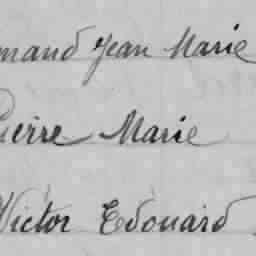 mand Jean Marie
Pierre Marie
Victor Edouard